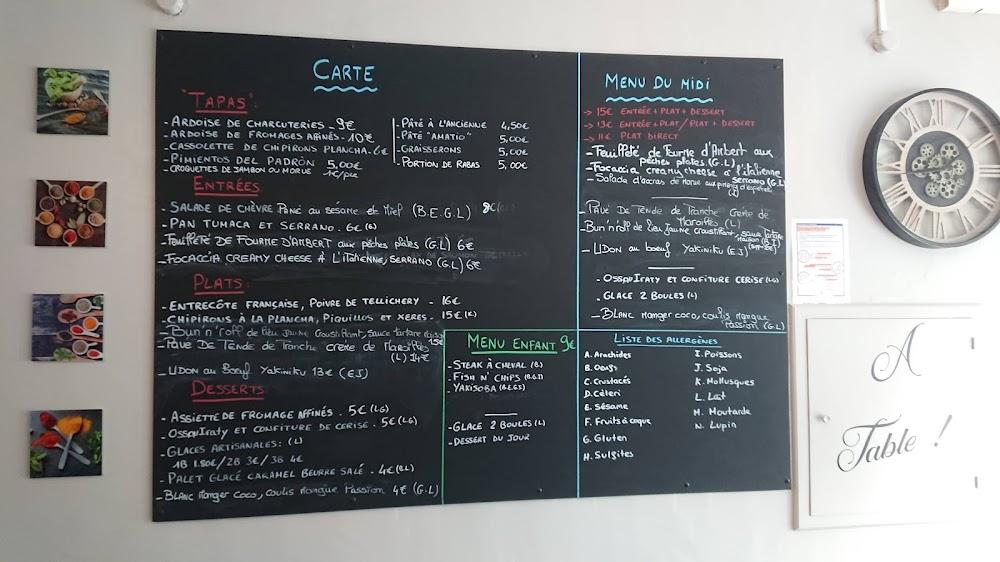 CARTE
"TAPAS":
- ARDOISE DE CHARCUTERIES - 9€
- ARDOISE DE FROMAGES AFFINÉS - 10€
- CASSOLETTE DE CHIPIRONS PLANCHA - 6€
- PIMIENTOS DEL PADRÒN 5,00€
- CROQUETTES DE JAMBON OU MORUE 1€/pce
- PÂTÉ À L'ANCIENNE 4,50€
- PÂTÉ "AMATIO" 5,00€
- GRAISSERONS 5,00€
- PORTION DE RABAS 5,00€
ENTRÉES
- SALADE DE CHÈVRE Pané au sésame et Miel (B.E.G.L) 8€
- PAN TUMACA ET SERRANO. 6€ (G)
- FEUILLETÉ DE FOURME D'AMBERT aux pêches plates (G.L) 6€
- FOCACCIA CREAMY CHEESE À L'ITALIENNE, SERRANO (G.L) 6€
PLATS:
- ENTRECÔTE FRANÇAISE, POIVRE DE TELLICHERY - 16€
- CHIPIRONS À LA PLANCHA, PIQUILLOS ET XERES. - 15€ (K)
- Bun'n'roll de lieu jaune croustillant, sauce tartare maison 15€
- PAVÉ DE Tende de Tranche crème de Maroilles
(L) 14€
- UDON au Boeuf YAKINIKU 13€ (E.J)
DESSERTS
- ASSIETTE DE FROMAGE AFFINÉS. 5€ (LG)
- OssauIraty ET CONFITURE DE CERISE. 5€ (LG)
- GLACES ARTISANALES: (L)
1B 1.80€/2B 3€/3B 4€
- PALET GLACÉ CARAMEL BEURRE SALÉ. 4€ (BL)
- BLANC Manger coco, coulis Mangue Passion 4€ (G.L)
MENU ENFANT 9€
- STEAK À CHEVAL (B)
- FISH N' CHIPS (B.G.I)
- YAKISOBA (B.E.G.J)
- GLACE 2 BOULES (L)
- DESSERT DU JOUR
MENU DU MIDI
→ 15€ ENTRÉE + PLAT + DESSERT
→ 13€ ENTRÉE + PLAT / PLAT + DESSERT
→ 11€ PLAT DIRECT
- Feuilleté de Fourme d'Ambert aux
pêches plates (G.L)
- Focaccia creamy cheese à l'italienne
SERRANO (G.L)
- Salade d'accras de Morue aux piment d'espelette
- PAVÉ DE Tende de Tranche crème de
Maroilles (L)
- Bun'n'roll de lieu jaune croustillant, sauce tartare
maison (B.I)
- UDON au boeuf YAKINIKU (E.J)
- OssauIraty ET CONFITURE CERISE (LG)
- GLACE 2 BOULES (L)
- BLANC Manger coco, coulis mangue
PASSION (G.L)
LISTE DES ALLERGÈNES
A. Arachides
B. Oeufs
C. Crustacés
D. Céleri
E. Sésame
F. Fruits à coque
G. Gluten
H. Sulfites
I. Poissons
J. Soja
K. Mollusques
L. Lait
M. Moutarde
N. Lupin
A
Table !